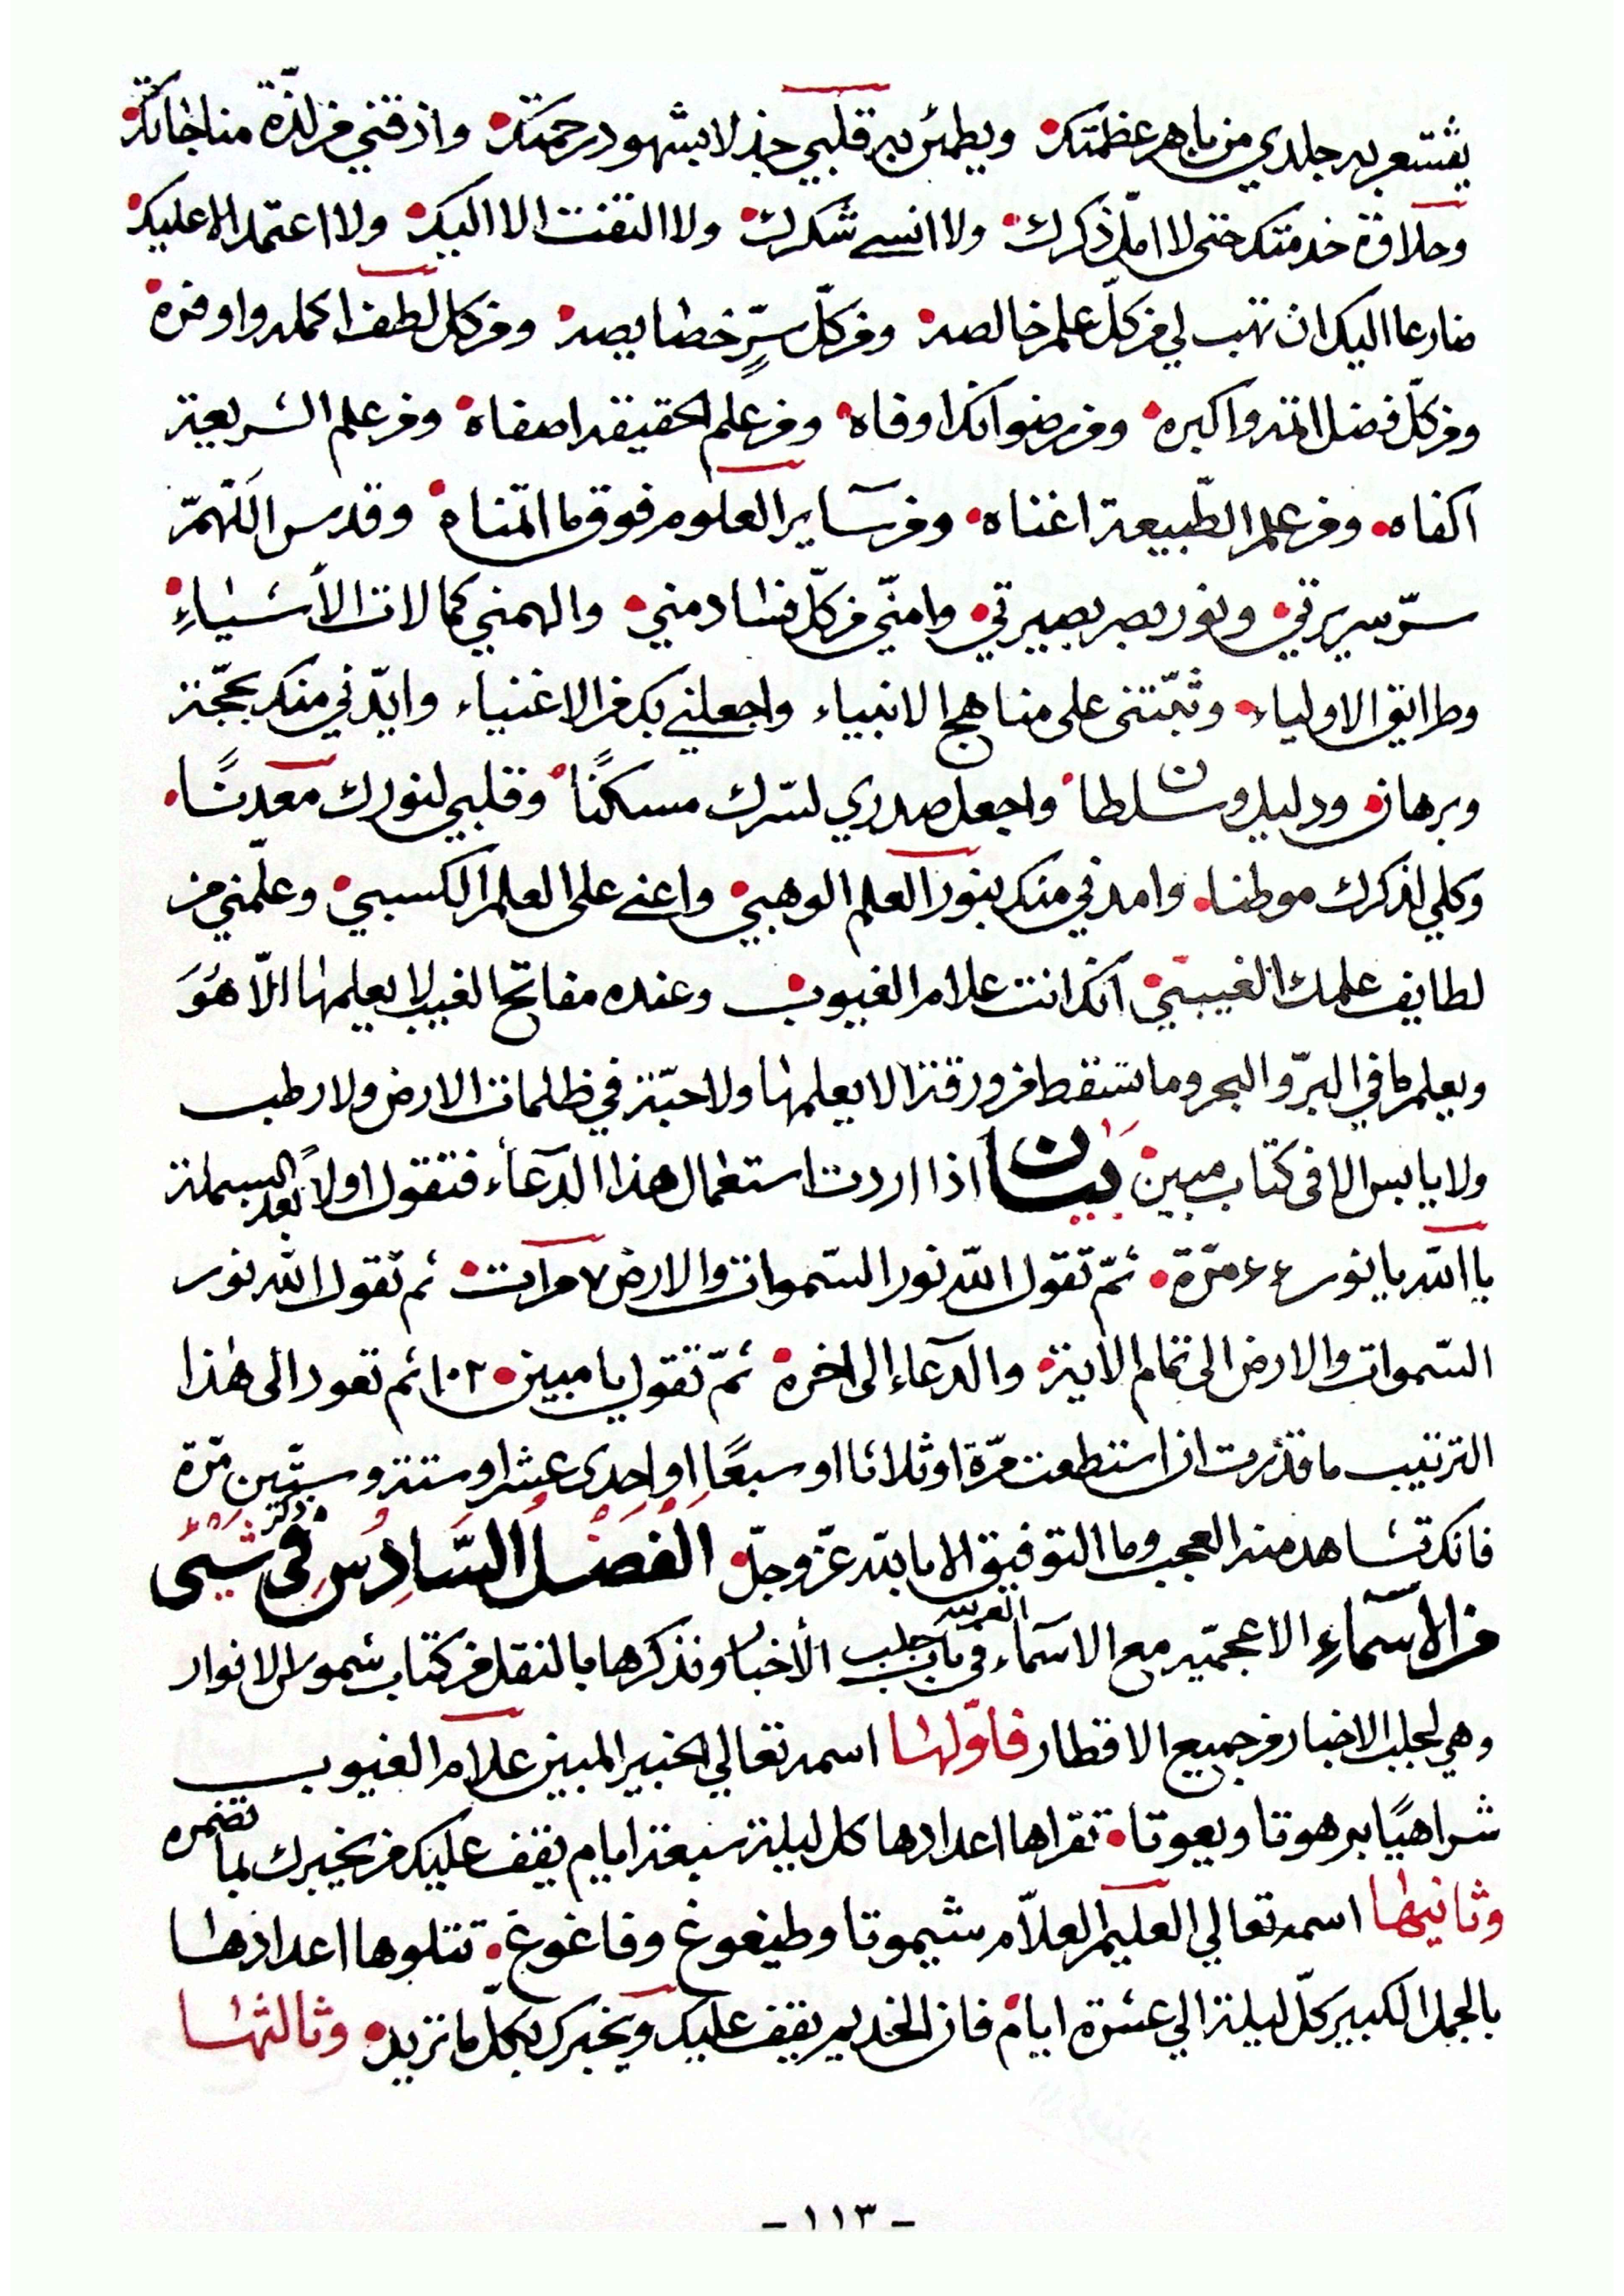 يقشعر به جلدي من باهر عظمتك • ويطمئن به قلبي جذلا بشهود رحمتك • واذقني من لذة مناجاتك •
وحلاوة خدمتك حتى لا امل ذكرك • ولا انسى شكرك • ولا التفت الا اليك • ولا اعتمد الا عليك •
ضارعا اليك ان تهب لي من كلّ علم خالصه • ومن كلّ سرٍّ خصايصه • ومن كل لطف اكمله واوفره •
ومن كلّ فضل اتمه واكبره • ومن رضوانك اوفاه • ومن علم الحقيقة اصفاه • ومن علم الشريعة
اكفاه • ومن علم الطّبيعة اغناه • ومن سآير العلوم فوق ما اتمناه • وقدس اللّهمّ
سرّ سريرتي • ونور بصر بصيرتي • وامنّي من كلّ فساد مني • والهمني كمالات الأشياءِ •
وطرائق الاولياء • وثبّتني على مناهج الانبياء واجعلني بك من الاغنياء وايّدني منك بحجّة
وبرهان • ودليل وسلطان • واجعل صدري لسّرك مسكنًا • وقلبي لنورك معدنًا •
وكلي لذكرك موطنا • وامدني منك بنور العلم الوهبي • واعني على العلم الكسبي • وعلّمني من
لطايف علمك الغيبيّ • انك انت علام الغيوب • وعنده مفاتح الغيب لا يعلمها الّا هُوَ
ويعلم ما في البرّ والبحر وما تسقط من ورقة الا يعلمها ولا حبّة في ظلمات الارض ولا رطب
ولا يابس الا في كتاب مبين • بيان اذا اردت استعمال هذا الدعآء فتقول اولاً بعد البسملة
يا اللّه يا نور ٤٤٦ مرّة • ثمّ تقول اللّه نور السّموات والارض ٧ مرات • ثم تقول اللّه نور
السّموات والارض الى تمام الاية • والدعآء الى اخره • ثمّ تقول يا مبين • ١٠٢ ثم تعود الى هذا
الترتيب ما قدرت ان استطعت مرّة او ثلاثا او سبعًا او احدى عشر او ستة وستّين مّرة
فانك تشاهد منه العجب وما التوفيق الا بالله عزّ وجلّ • الفصل السّادِسُ في ذكر شيئ
من الاسمآءِ الاعجميّه مع الاسمآء العربيه في باب جلب الأخبار ونذكرها بالنقل من كتاب شموس الانوار
وهي لجلب الاخبار من جميع الاقطار فأوّلها اسمه تعالي الخبير المبين علام الغيوب
شراهيًا برهوتا ويعوتا • تقراها اعدادها كل ليلة سبعة ايام يقف عليك من يخبرك بما تضمره
وثانيها اسمه تعالي العليم العلاّم شيموتا وطيغوغ وفاغوغ • تتلوها اعدادها
بالجمل الكبير كلّ ليلة الي عشرة ايام • فان الخديم يقف عليك ويخبرك بكلّ ما تريد • وثالثها
- ١١٣ -